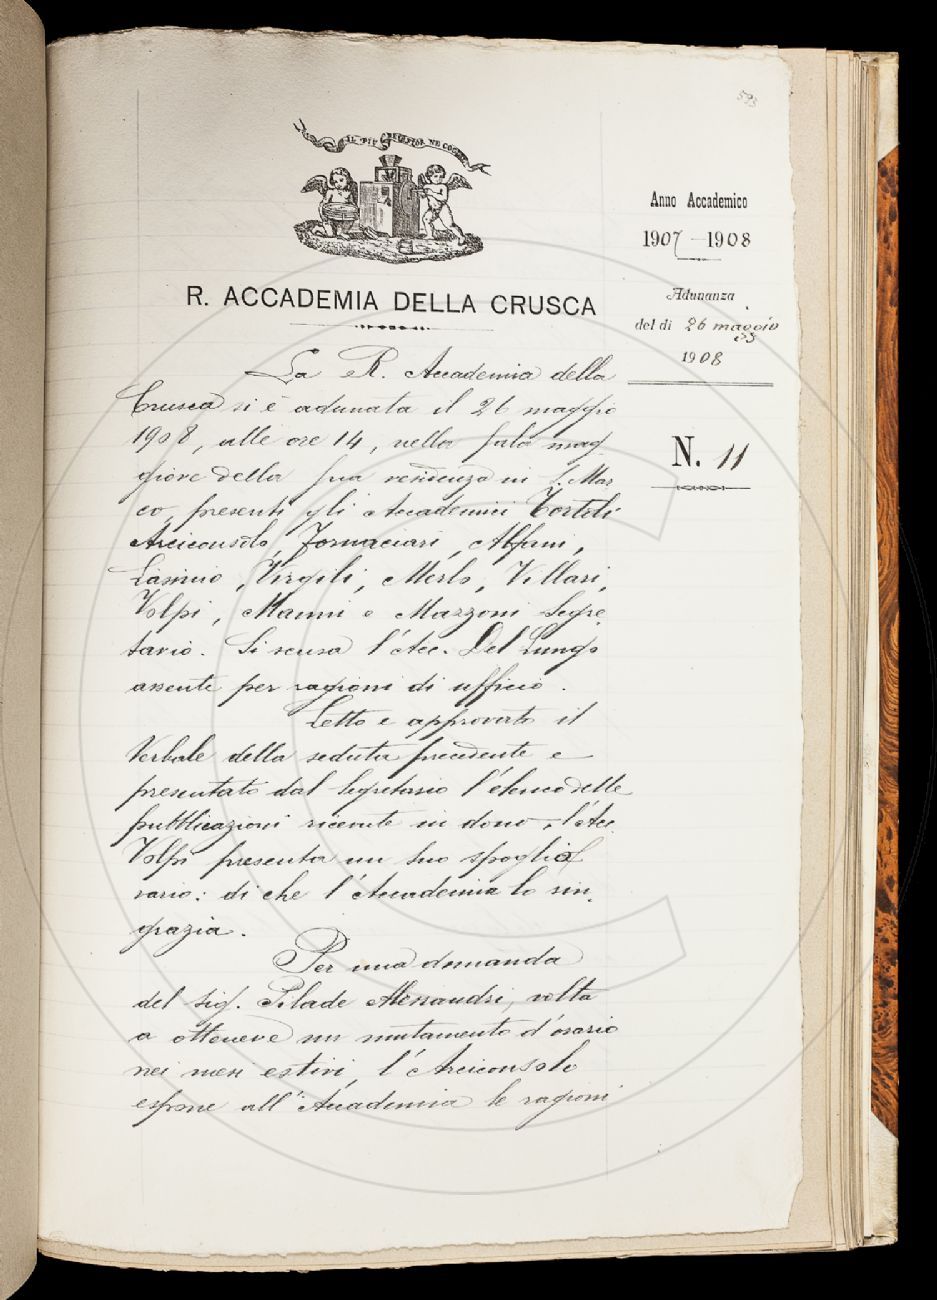 593
IL PIÙ BEL FIOR NE COGLIE
Anno Accademico
1907-1908
Adunanza
del dì 26 maggio
1908
N. 11
R. ACCADEMIA DELLA CRUSCA
La R. Accademia della
Crusca si è adunata il 26 maggio
1908, alle ore 14, nella sala mag
giore della sua residenza in S. Mar
co, presenti gli Accademici Tortoli
Arciconsolo, Fornaciari, Alfani,
Lasinio, Virgili, Merlo, Villari,
Volpi, Manni e Mazzoni Segre
tario. Si scusa l'Acc. Del Lungo
assente per ragioni di ufficio.
Letto e approvato il
Verbale della seduta precedente e
presentato dal Segretario l'elenco delle
pubblicazioni ricevute in dono, l'Acc.
Volpi presenta un suo spoglio
vario: di che l'Accademia lo rin
grazia.
Per una domanda
del sig. Pilade Alessandri, volta
a ottenere un mutamento d'orario
nei mesi estivi, l'Arciconsolo
espone all'Accademia le ragioni